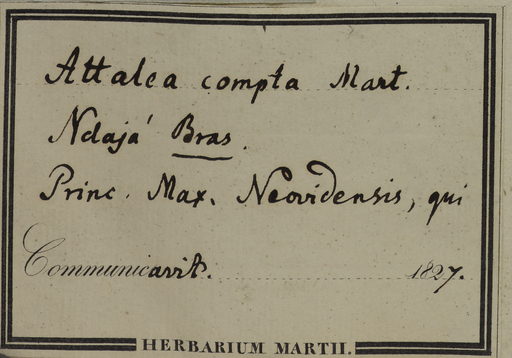 Attalea compta Mart.
Ndajá Bras.
Princ. Max. Neovidensis, qui
Communicavit. 1827.
HERBARIUM MARTII.